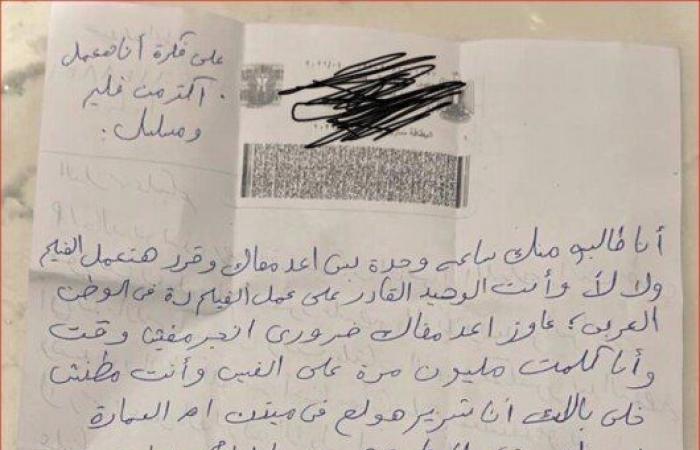 على فكرة أنا هعمل
أكتر من فيلم
ومسلسل.
أنا طالب منك ساعة وحدة بس اعد معاك وقرر هتعمل الفيلم
ولا لأ وأنت الوحيد القادر على عمل الفيلم دة فى الوطن
العربى؛ عاوز اعد معاك ضرورى انجز مفيش وقت
وأنا كلمت مليون مرة على الفيس وأنت مطنش
خلى بالك أنا شريز هولع فى ميتين ام العمارة